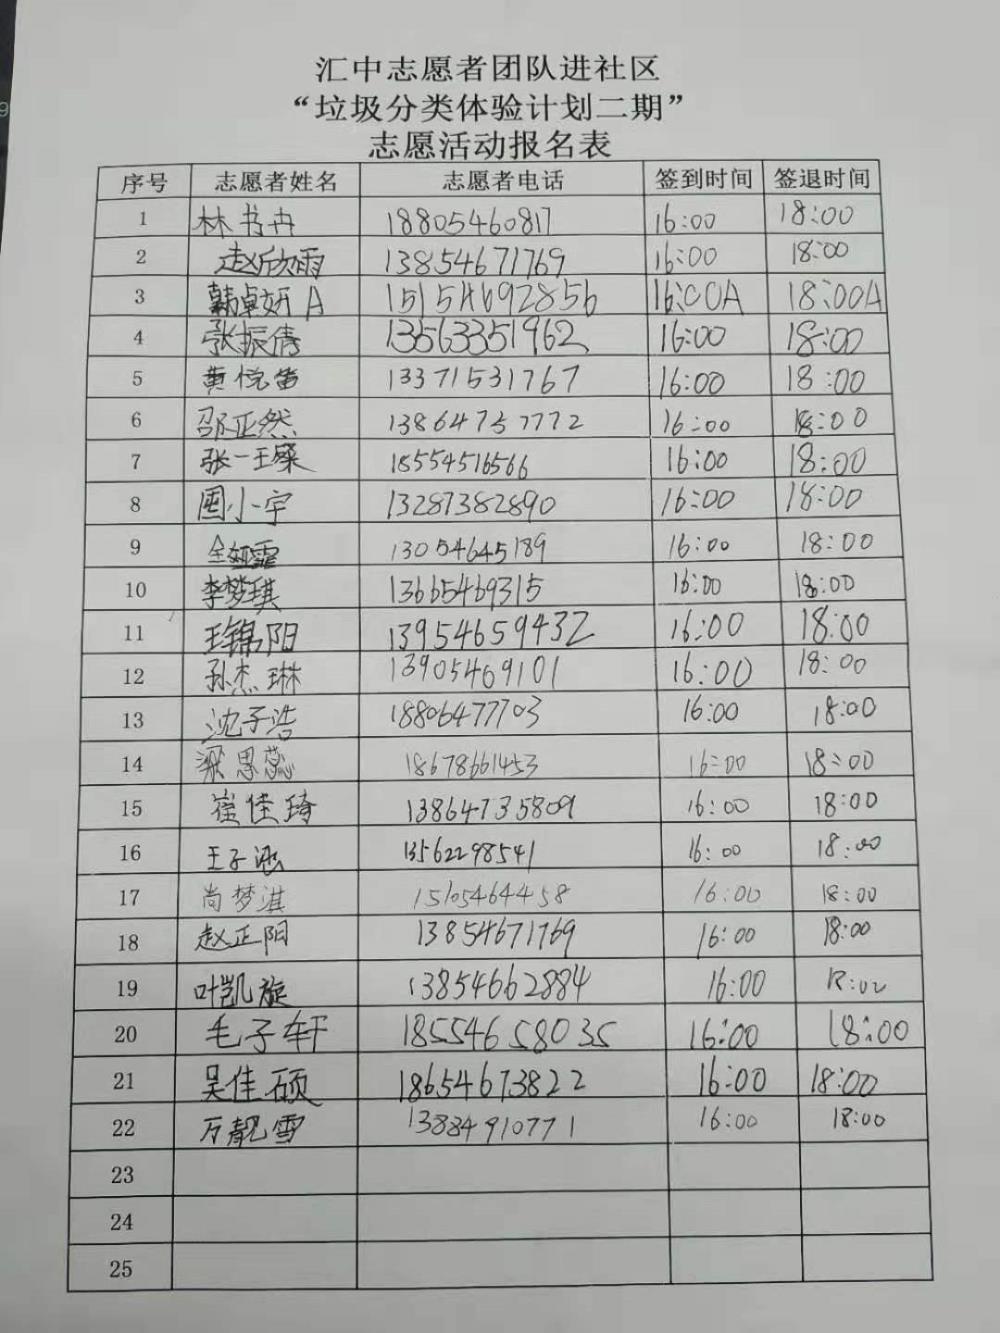 汇中志愿者团队进社区
“垃圾分类体验计划二期”
志愿活动报名表
序号 志愿者姓名 志愿者电话 签到时间 签退时间
1 林书冉 18805460817 16:00 18:00
2 赵欣雨 13854671769 16:00 18:00
3 韩卓妍A 15154692856 16:00A 18:00A
4 张振倩 13563351962 16:00 18:00
5 黄悦笛 13371531767 16:00 18:00
6 邵正然 13864757772 16:00 18:00
7 张一王粲 18554516566 16:00 18:00
8 周小宇 13287382890 16:00 18:00
9 13054645189 16:00 18:00
10 李梦琪 13665469315 16:00 18:00
11 王锦阳 13954659432 16:00 18:00
12 孙杰琳 13905469101 16:00 18:00
13 沈子浩 18806477703 16:00 18:00
14 梁思蕊 18678661453 16:00 18:00
15 崔佳琦 13864735809 16:00 18:00
16 王子涵 13562298541 16:00 18:00
17 尚梦淇 15105464458 16:00 18:00
18 赵正阳 13854671769 16:00 18:00
19 叶凯旋 13854662884 16:00 18:00
20 毛子轩 18554658035 16:00 18:00
21 吴佳硕 18654673822 16:00 18:00
22 万靓雪 13884910771 16:00 18:00
23
24
25